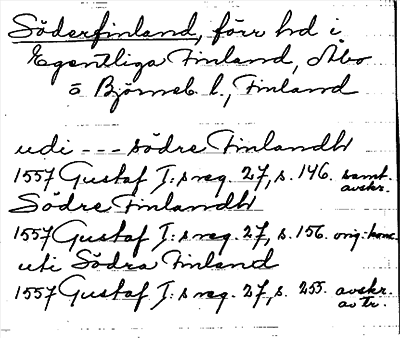 Söderfinland, förr hd i
Egentliga Finland, Åbo
o Björneb l., Finland
udi --- södre Finlandh
1557 Gustaf I:s reg. 27, s. 146. samt. avskr.
Södre Finlandh
1557 Gustaf I:s reg. 27, s. 156. orig. konc.
uti Södra Finland
1557 Gustaf I:s reg. 27, s. 255. avskr. av tr.